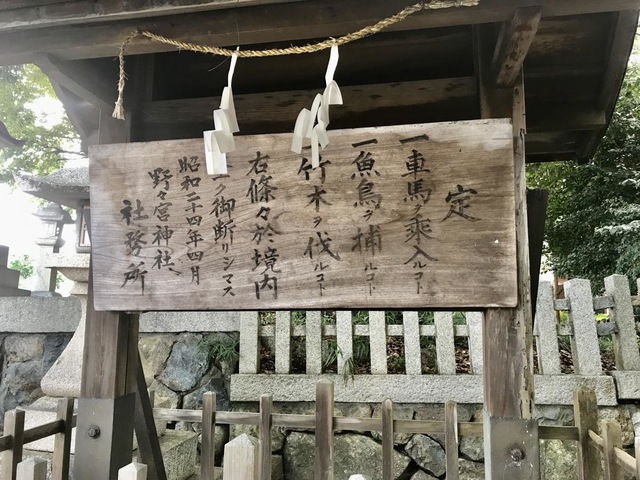 定
一車馬ヲ乘入ルコト
一魚鳥ヲ捕ルコト
竹木ヲ伐ルコト
右條々於境内
ク御断リシマス
昭和二十四年四月
野々宮神社
社務所